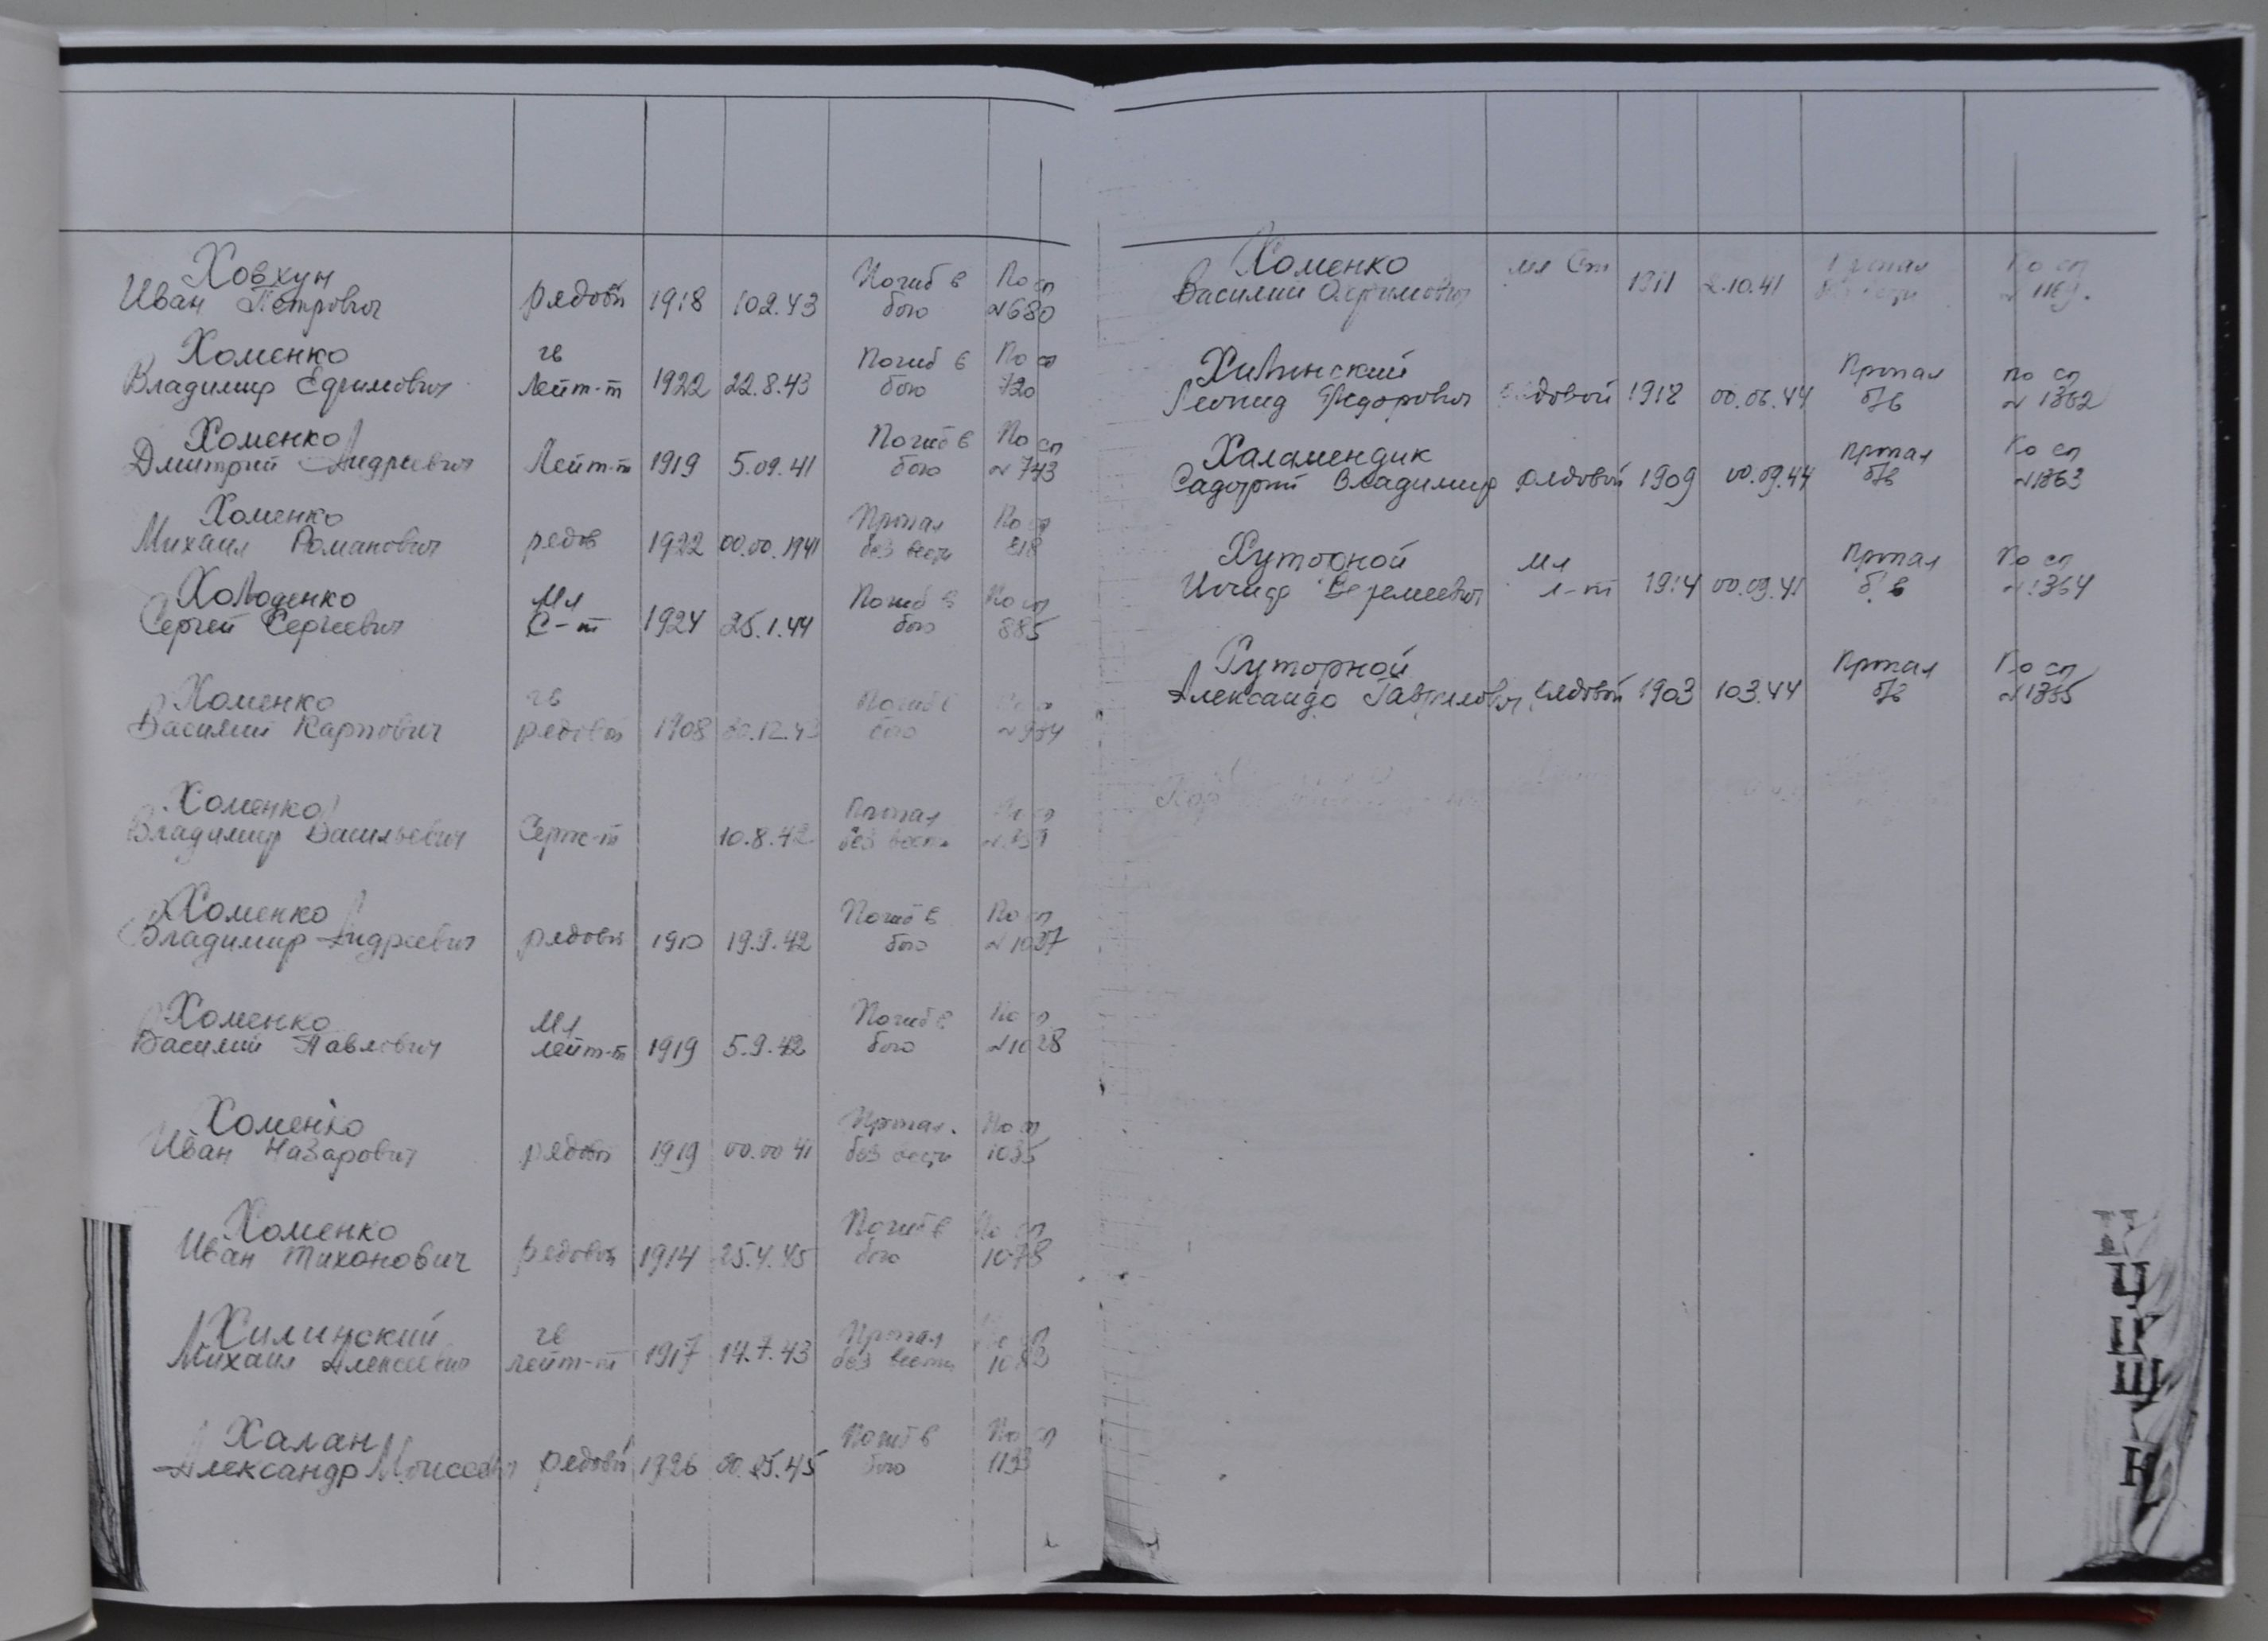 Ховхун
Иван Петрович рядовй 1918 10.2.43 Погиб в бою По сп №680
Хоменко
Владимир Ефимович гв Лейт-т 1922 22.8.43 Погиб в бою По сп 720
Хоменко
Дмитрий Андреевич Лейт-т 1919 5.09.41 Погиб в бою По сп №743
Хоменко
Михаил Романович рядов 1922 00.00.1941 Пропал без вести По сп 818
Холоденко
Сергей Сергеевич Мл С-т 1924 25.1.44 Погиб в бою По сп 885
Хоменко
Василий Карпович гв рядовой 1908 .12.43 Погиб в бою По сп
Хоменко
Владимир Васильевич Серж-т 10.8.42 Пропал без вести По сп
Хоменко
Владимир Андреевич рядовй 1910 19.9.42 Погиб в бою По сп №1027
Хоменко
Василий Павлович Мл Лейт-т 1919 5.9.42 Погиб в бою По сп №1028
Хоменко
Иван Назарович рядовй 1919 00.00 41 Пропал без вести По сп 1035
Хоменко
Иван Тихонович рядовй 1914 25.4.45 Погиб в бою По сп 1078
Хилинский
Михаил Алексеевич гв лейт-т 1917 14.7.43 Пропал без вести По сп 1083
Халан
Александр Моисеевич рядовй 1926 00.05.45 Погиб в бою По сп 1193
Хоменко
Василий мл Ст 1911 2.10.41 Пропал без вести По сп
Хилинский
Леонид Федорович рядовой 1918 00.06.44 Пропал б/в по сп № 1362
Халамендик
Владимир рядовой 1909 00.09.44 пропал б/в По сп №1363
Хуторной
Веремеевич Мл л-т 1914 00.09.41 Пропал б/в По сп №1364
Хуторной
Александр Гаврилович рядовой 1903 10 3.44 Пропал б/в По сп №1365
Ч
Щ